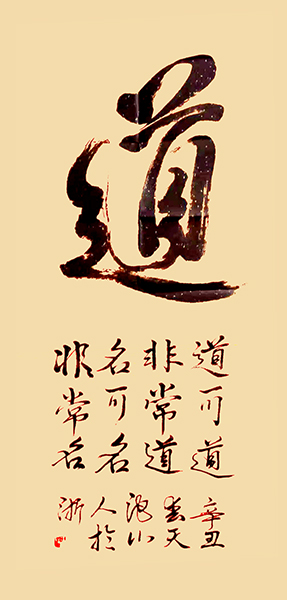 道
道可道
非常道
名可名
非常名
辛丑
天
人於
浙